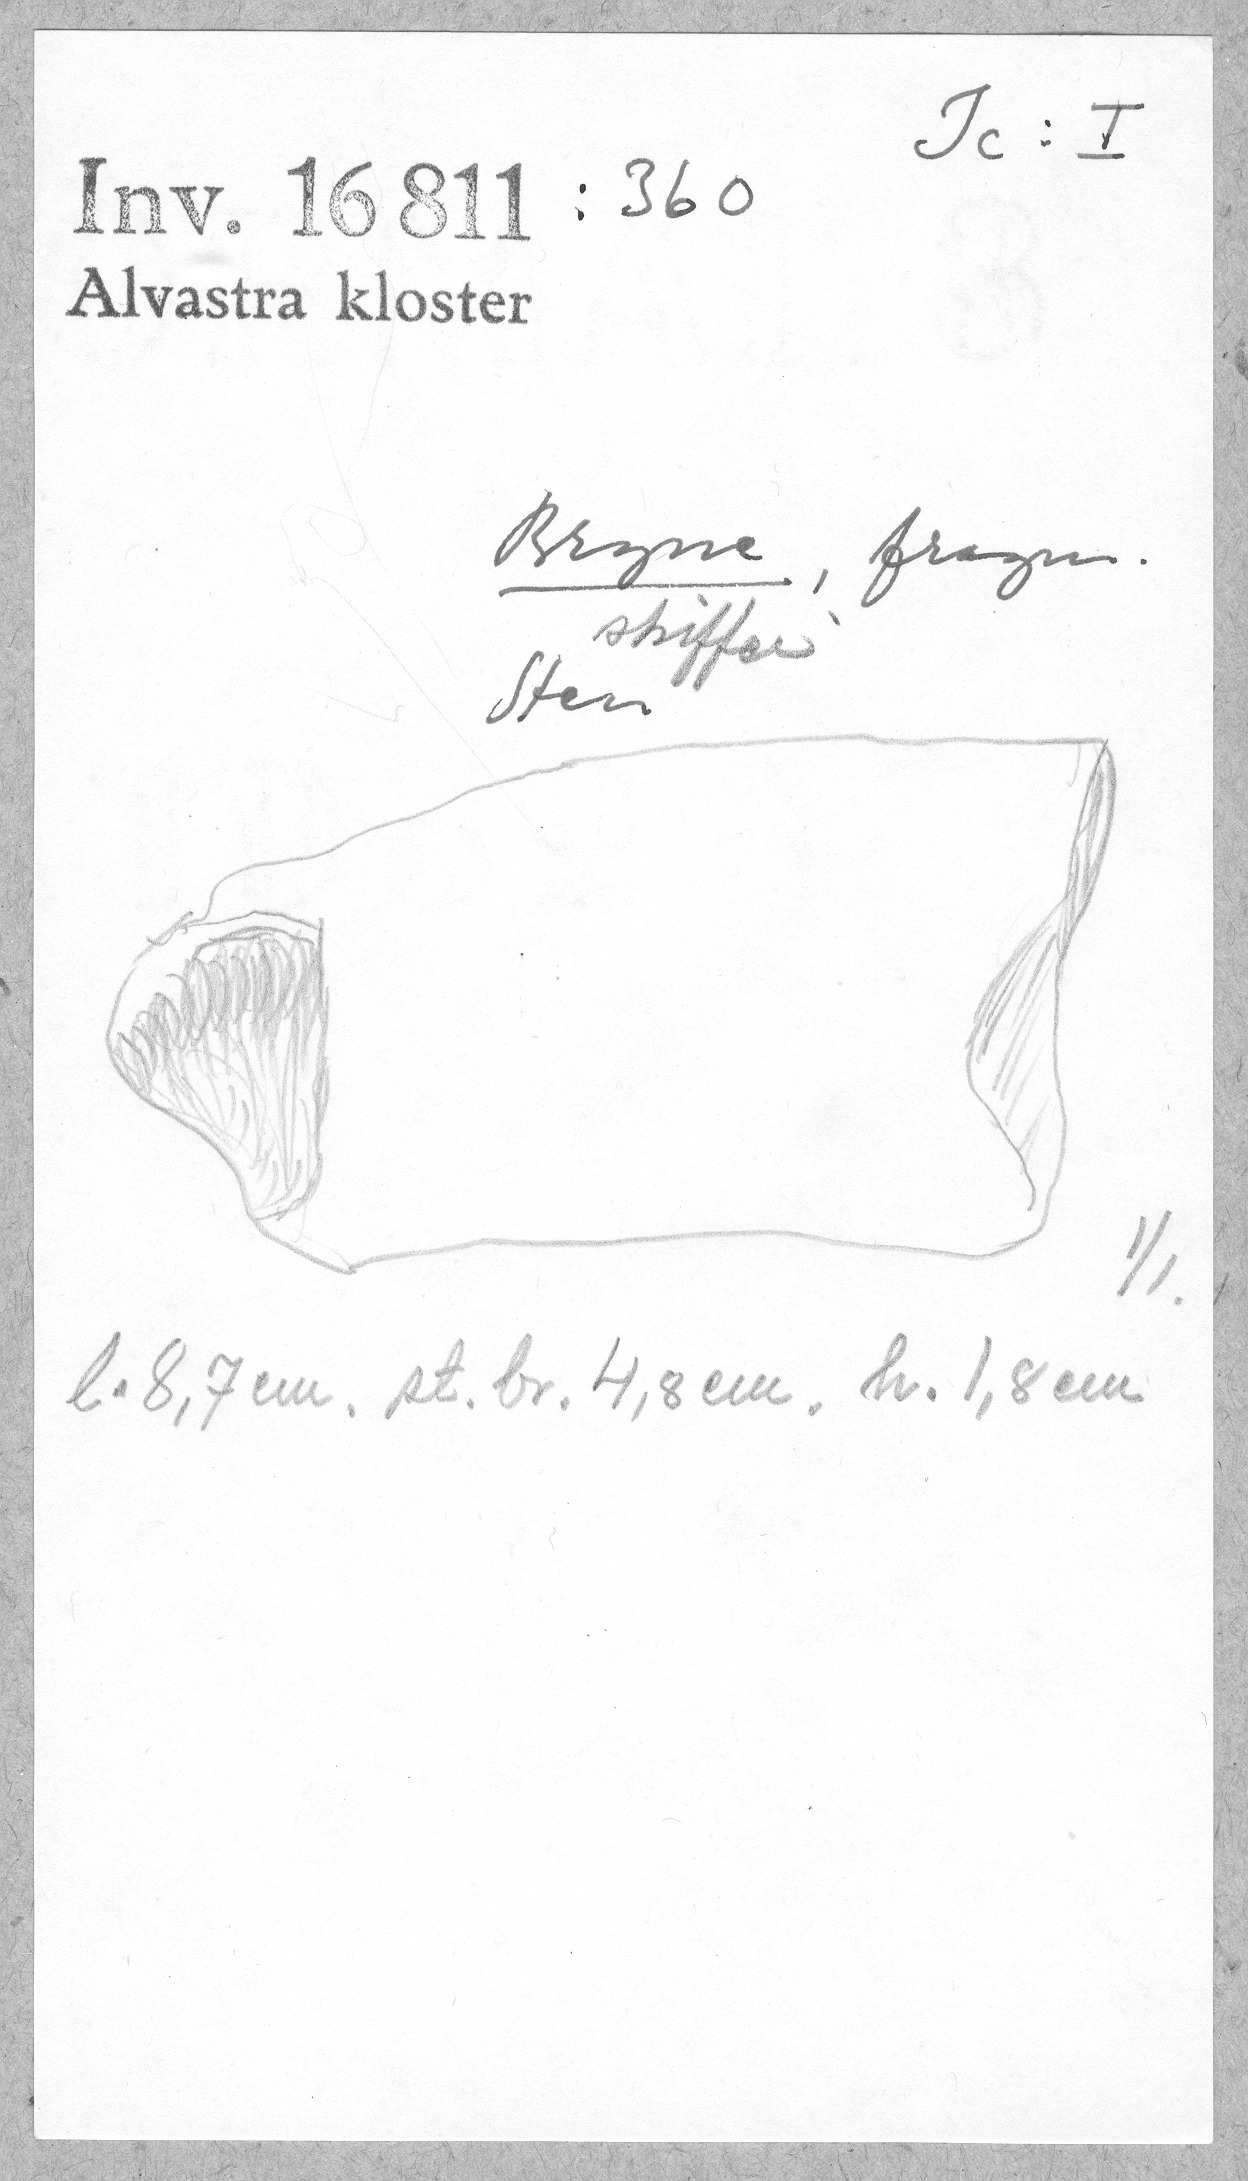 Jc : I
Inv. 16 811 : 360
Alvastra kloster
Bryne, fragm.
skiffer
Sten
1/1.
l. 8,7 cm. st. br. 4,8 cm. h. 1,8 cm